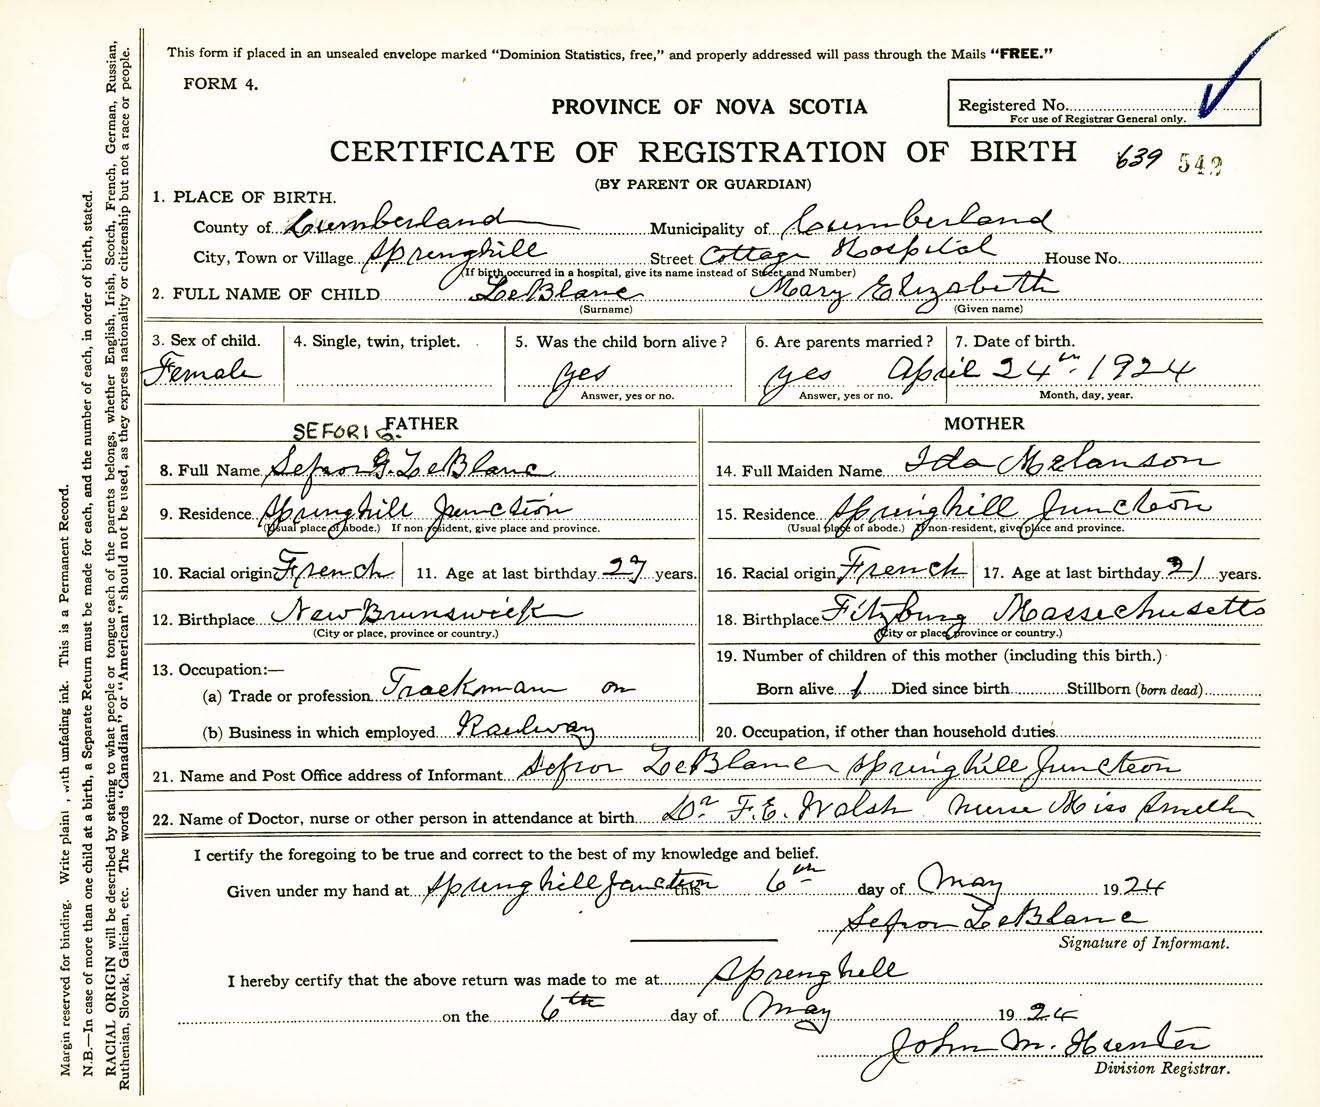 This form if placed in an unsealed envelope marked "Dominion Statistics, free," and properly addressed will pass through the Mails "FREE."
FORM 4.
PROVINCE OF NOVA SCOTIA
Registered No.
For use of Registrar General only.
CERTIFICATE OF REGISTRATION OF BIRTH 639 542
(BY PARENT OR GUARDIAN)
1. PLACE OF BIRTH.
County of Cumberland Municipality of Cumberland
City, Town or Village Springhill Street Cottage Hospital House No.
(If birth occurred in a hospital, give its name instead of Street and Number)
2. FULL NAME OF CHILD LeBlanc Mary Elizabeth
(Surname) (Given name)
3. Sex of child. 4. Single, twin, triplet. 5. Was the child born alive? 6. Are parents married? 7. Date of birth.
Female yes yes April 24th 1924
Answer, yes or no. Answer, yes or no. Month, day, year.
FATHER MOTHER
SEFORI G.
8. Full Name Sefror G. LeBlanc 14. Full Maiden Name Ida Melanson
9. Residence Springhill Junction 15. Residence Springhill Junction
(Usual place of abode.) If non resident, give place and province. (Usual place of abode.) If non-resident, give place and province.
10. Racial origin French 11. Age at last birthday 27 years. 16. Racial origin French 17. Age at last birthday 21 years.
12. Birthplace New Brunswick 18. Birthplace Fitzburg Massechusetts
(City or place, province or country.) (City or place, province or country.)
13. Occupation:— 19. Number of children of this mother (including this birth.)
(a) Trade or profession Trackman on Born alive 1 Died since birth Stillborn (born dead)
(b) Business in which employed Railway 20. Occupation, if other than household duties
21. Name and Post Office address of Informant Sefror LeBlanc Springhill Junction
22. Name of Doctor, nurse or other person in attendance at birth Dr F.E. Walsh Nurse Miss Smith
I certify the foregoing to be true and correct to the best of my knowledge and belief.
Given under my hand at Springhill Junction this 6th day of May 1924
Sefror LeBlanc
Signature of Informant.
I hereby certify that the above return was made to me at Springhill
on the 6th day of May 1924
John M. Hunter
Division Registrar.
Margin reserved for binding. Write plainl , with unfading ink. This is a Permanent Record.
N.B.—In case of more than one child at a birth, a Separate Return must be made for each, and the number of each, in order of birth, stated.
RACIAL ORIGIN will be described by stating to what people or tongue each of the parents belongs, whether English, Irish, Scotch, French, German, Russian,
Ruthenian, Slovak, Galician, etc. The words "Canadian" or "American" should not be used, as they express nationality or citizenship but not a race or people.